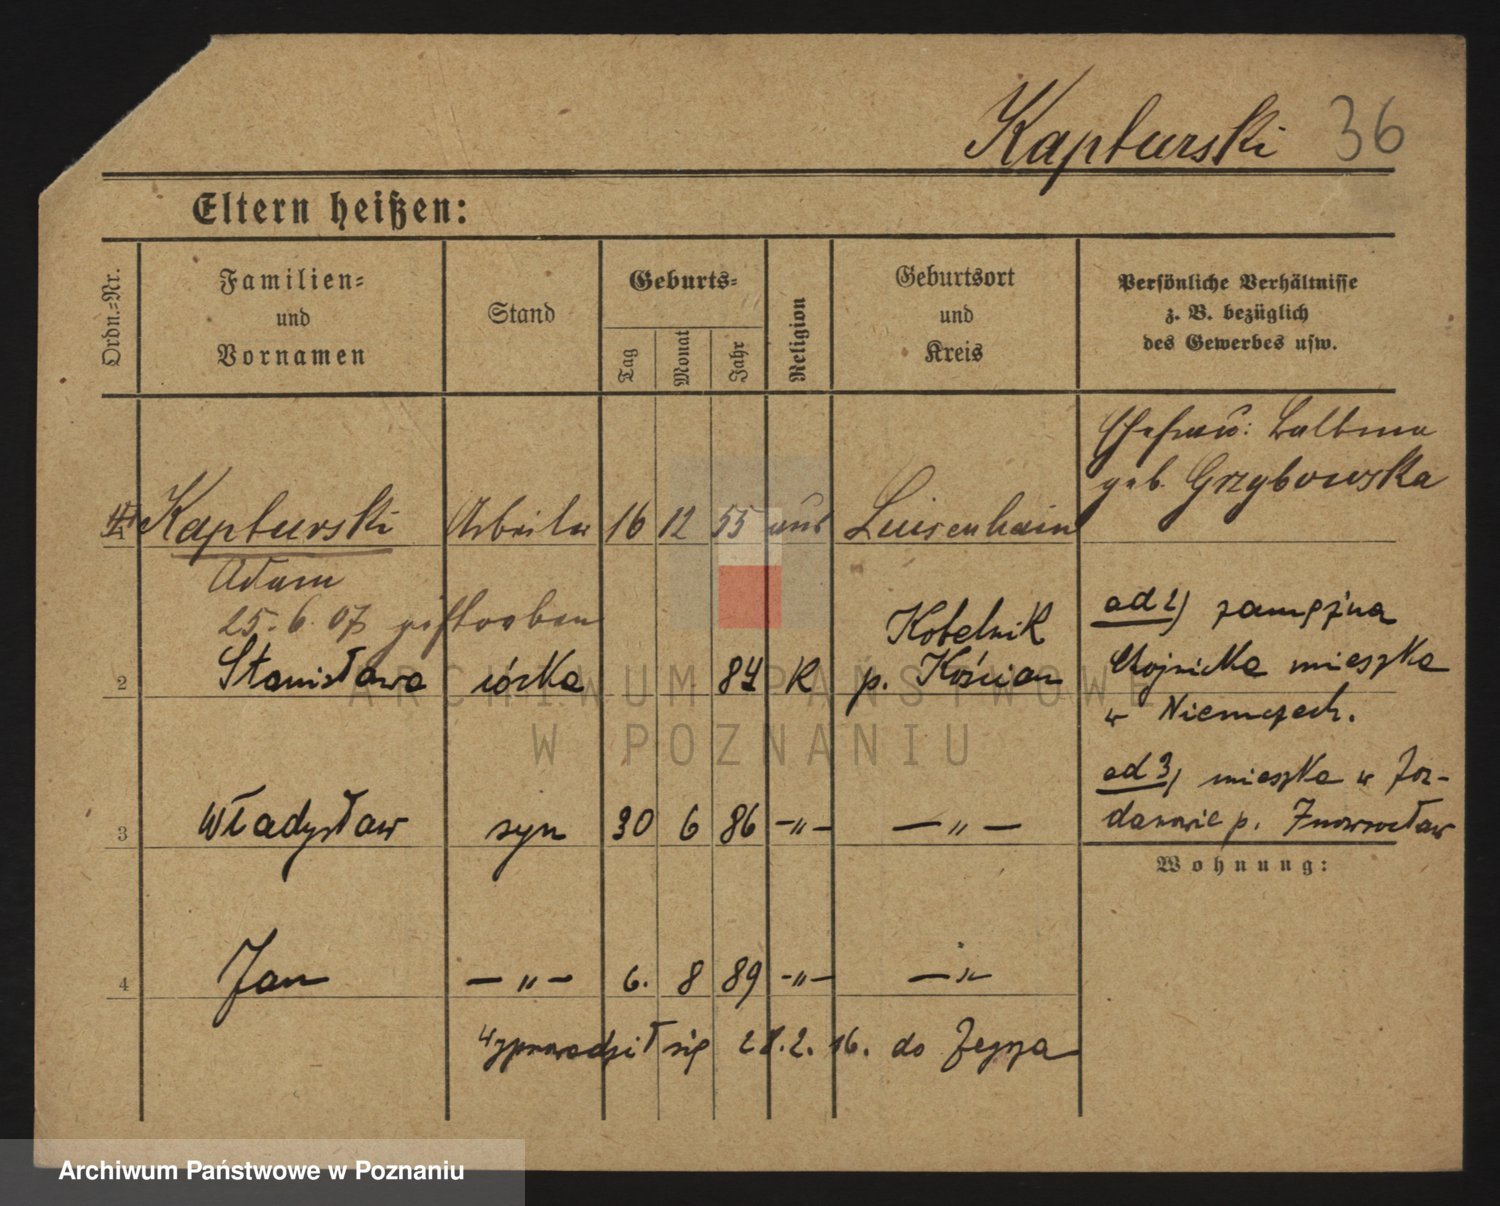 Kapturski 36
Eltern heißen:
Ordn.-Nr.
Familien-
und
Vornamen
Stand
Geburts-
Tag
Monat
Jahr
Religion
Geburtsort
und
Kreis
Persönliche Verhältnisse
z. B. bezüglich
des Gewerbes usw.
Ehefrau:
geb. Grzybowska
Kapturski Arbeiter 16 12 55 Luisenhain
Adam
25.6.07 gestorben
2 Stanisława córka 84 K Kobelnik
p. Kościan
ad 2) zamężna
mieszka
w Niemczech.
3 Władysław syn 30 6 86 -"- -"-
ad 3) mieszka w
p. Inowrocław
Wohnung:
4 Jan -"- 6. 8 89 -"- -"-
Wyprowadził się 28.2.16. do Zegrza
ARCHIWUM PAŃSTWOWE
W POZNANIU
Archiwum Państwowe w Poznaniu